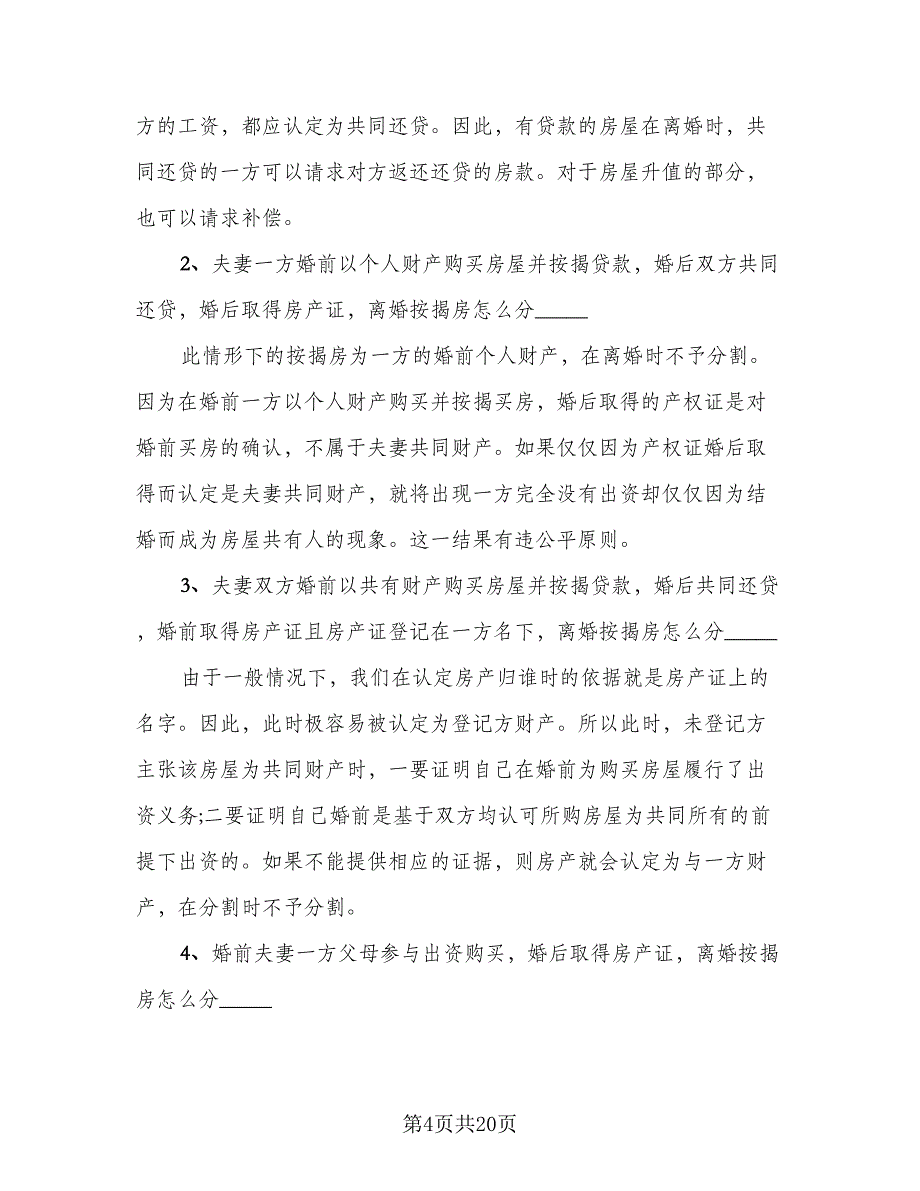 方的工资，都应认定为共同还贷。因此，有贷款的房屋在离婚时，共
同还贷的一方可以请求对方返还还贷的房款。对于房屋升值的部分，
也可以请求补偿。
2、夫妻一方婚前以个人财产购买房屋并按揭贷款，婚后双方共同
还贷，婚后取得房产证，离婚按揭房怎么分_____
此情形下的按揭房为一方的婚前个人财产，在离婚时不予分割。
因为在婚前一方以个人财产购买并按揭买房，婚后取得的产权证是对
婚前买房的确认，不属于夫妻共同财产。如果仅仅因为产权证婚后取
得而认定是夫妻共同财产，就将出现一方完全没有出资却仅仅因为结
婚而成为房屋共有人的现象。这一结果有违公平原则。
3、夫妻双方婚前以共有财产购买房屋并按揭贷款，婚后共同还贷
，婚前取得房产证且房产证登记在一方名下，离婚按揭房怎么分_____
由于一般情况下，我们在认定房产归谁时的依据就是房产证上的
名字。因此，此时极容易被认定为登记方财产。所以此时，未登记方
主张该房屋为共同财产时，一要证明自己在婚前为购买房屋履行了出
资义务;二要证明自己婚前是基于双方均认可所购房屋为共同所有的前
提下出资的。如果不能提供相应的证据，则房产就会认定为与一方财
产，在分割时不予分割。
4、婚前夫妻一方父母参与出资购买，婚后取得房产证，离婚按揭
房怎么分_____
第4页共20页